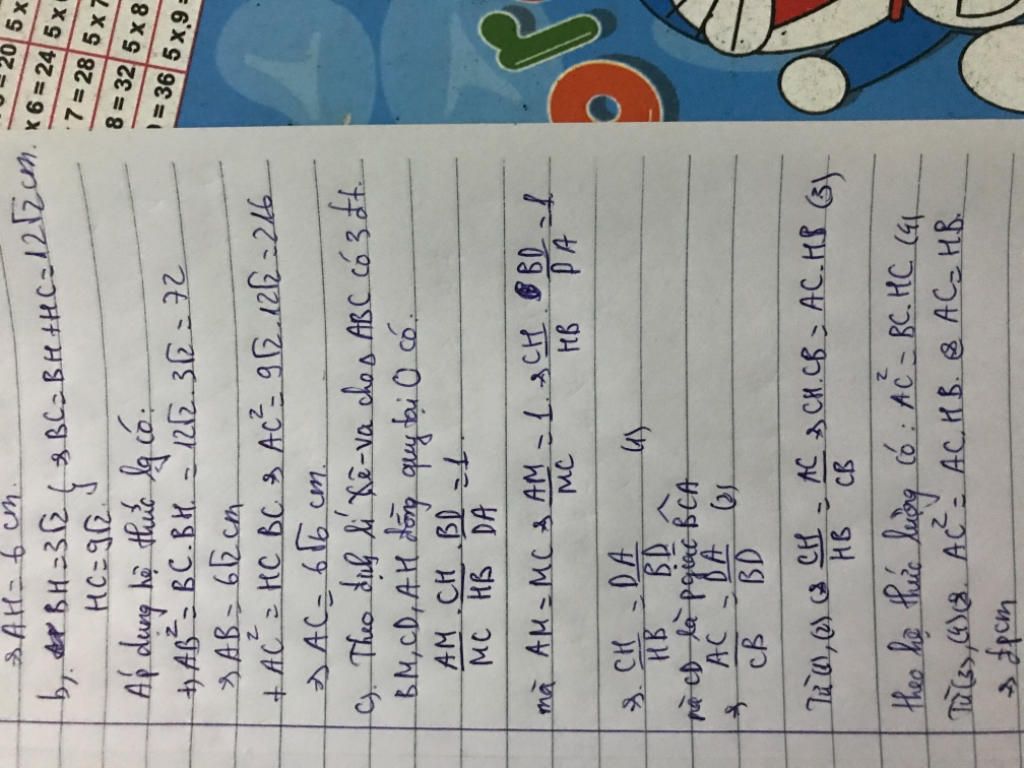 ⇒ AH = 6 cm.
b). BH = 3√2 } ⇒ BC = BH + HC = 12√2 cm.
HC = 9√2
Áp dụng hệ thức lg có:
+) AB² = BC.BH = 12√2 . 3√2 = 72
⇒ AB = 6√2 cm
+ AC² = HC BC ⇒ AC² = 9√2 . 12√2 = 216
⇒ AC = 6√6 cm.
c). Theo định lí Xê-va cho Δ ABC có 3 đt.
BM, CD, AH đồng quy tại O có.
AM/MC . CH/HB . BD/DA = 1
mà AM = MC ⇒ AM/MC = 1 . ⇒ CH/HB . BD/DA = 1
⇒ CH/HB = DA/BD (1)
mà CD là pgiác BCA
⇒ AC/CB = DA/BD (2)
Từ (1), (2) ⇒ CH/HB = AC/CB ⇒ CH.CB = AC.HB (3)
theo hệ thức lường có: AC² = BC.HC. (4)
Từ (3), (4) ⇒. AC² = AC.HB. ⇒ AC = HB.
⇒ đpcm
= 20 5 x
x 6 = 24 5 x
7 = 28 5 x 7
8 = 32 5 x 8
= 36 5 x 9 =